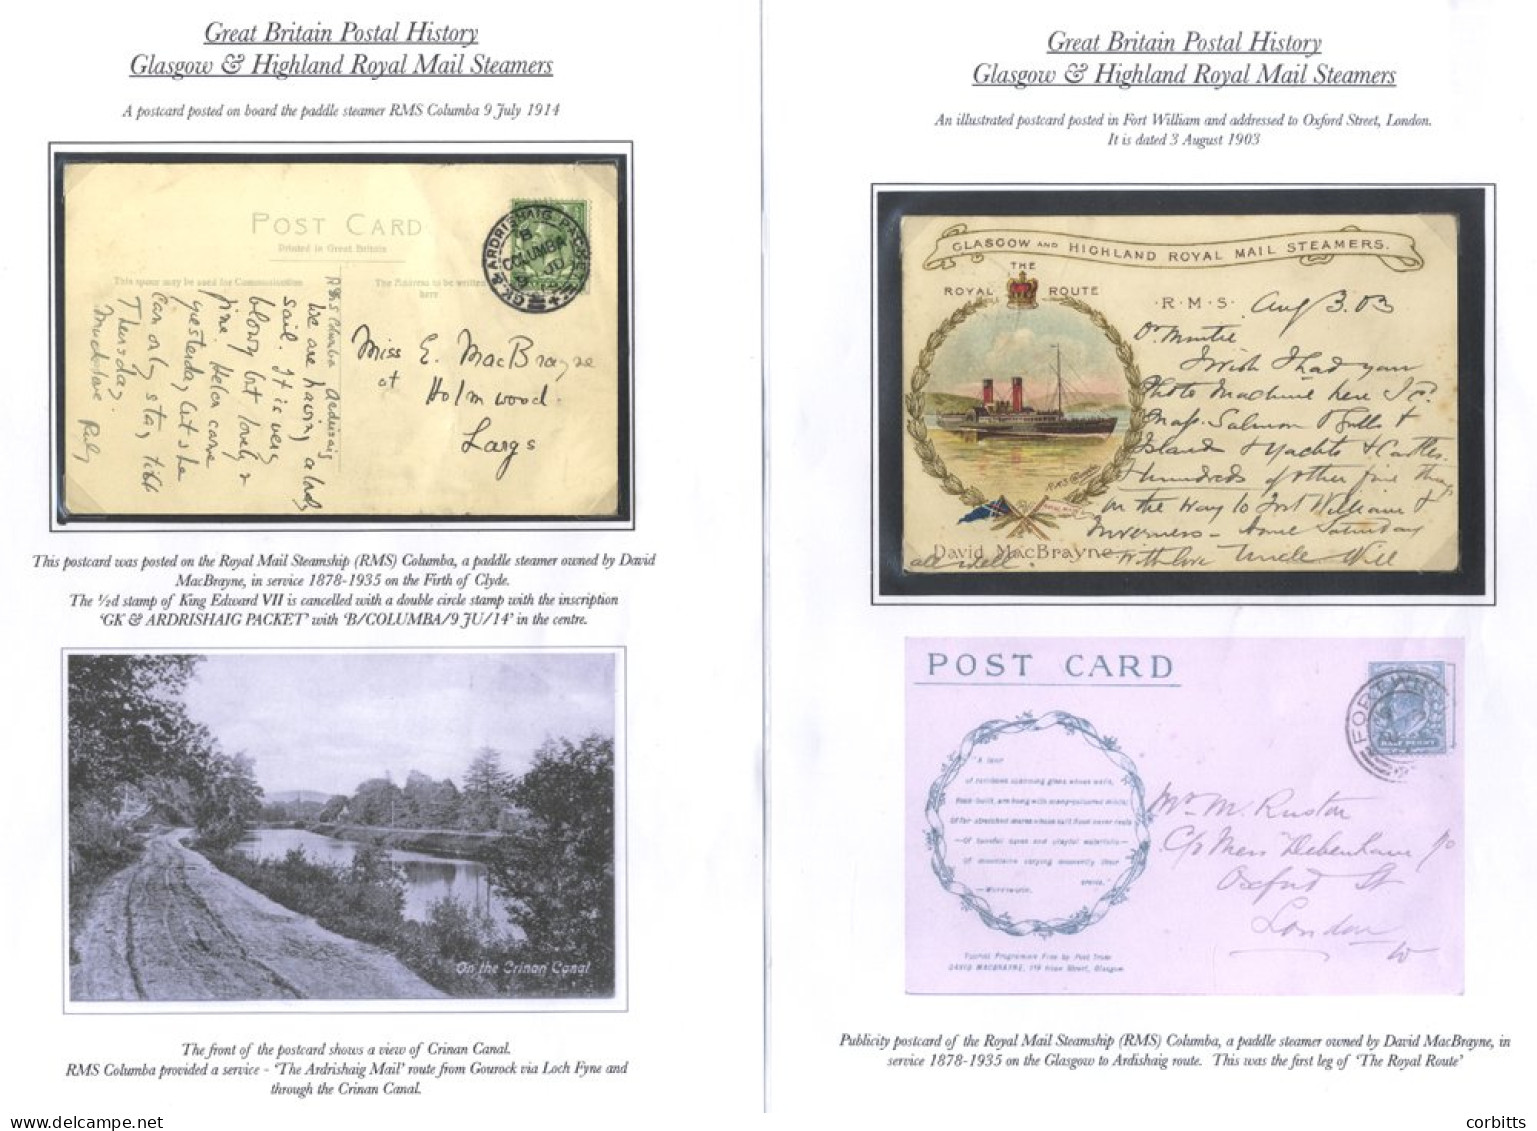 Great Britain Postal History
Glasgow & Highland Royal Mail Steamers
A postcard posted on board the paddle steamer RMS Columba 9 July 1914
POST CARD
Printed in Great Britain
This space may be used for Communication
The Address to be written
here
GK. & ARDRISHAIG PACKET
B
COLUMBA
9 JU
RMS Columba Ardrisaig
We are having a lovely
sail. It is very
blowy but lovely &
fine. Helen came
yesterday but she
can only stay till
Thursday.
Much love Ruby
Miss E. MacBrayne
at
Holmwood
Largs
This postcard was posted on the Royal Mail Steamship (RMS) Columba, a paddle steamer owned by David
MacBrayne, in service 1878-1935 on the Firth of Clyde.
The ½d stamp of King Edward VII is cancelled with a double circle stamp with the inscription
'GK & ARDRISHAIG PACKET' with 'B/COLUMBA/9 JU/14' in the centre.
On the Crinan Canal
The front of the postcard shows a view of Crinan Canal.
RMS Columba provided a service - 'The Ardrishaig Mail' route from Gourock via Loch Fyne and
through the Crinan Canal.
Great Britain Postal History
Glasgow & Highland Royal Mail Steamers
An illustrated postcard posted in Fort William and addressed to Oxford Street, London.
It is dated 3 August 1903
GLASGOW AND HIGHLAND ROYAL MAIL STEAMERS.
THE
ROYAL ROUTE
R.M.S. Aug 3. 03
I wish I had your
Photo Machine here I cd
snap Salmon & Falls &
Islands & Yachts & Castles.
Hundreds of other fine things
on the way to Fort William &
Inverness - Home Saturday
all well. With love Uncle Will
R.M.S. Columba
David MacBrayne
POST CARD
FORT WILLIAM
HALF PENNY
"A tour
of rainbows spanning glens whose walls,
Rock-built, are hung with many-coloured mists;
Of far-stretched meres whose salt flood never rests
—Of tuneful caves and playful waterfalls—
Of mountains varying momently their
crests."
—Wordsworth.
Tourist Programme Free by Post from
DAVID MACBRAYNE, 119 Hope Street, Glasgow
Mr M. Ruston
C/o Messrs Debenham
Oxford St.
London
W
Publicity postcard of the Royal Mail Steamship (RMS) Columba, a paddle steamer owned by David MacBrayne, in
service 1878-1935 on the Glasgow to Ardishaig route. This was the first leg of 'The Royal Route'
corbitts
www.delcampe.net